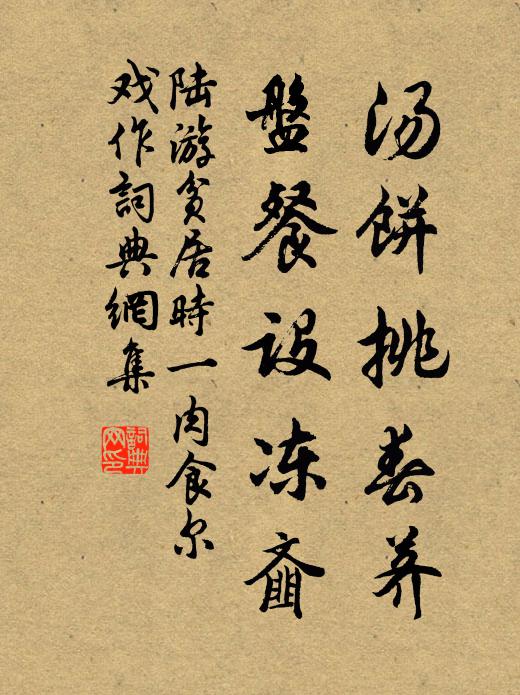 汤餅挑春荠
盤餐设冻齑
陆游贫居時一肉食尔
戏作詞典網集
詞典网印